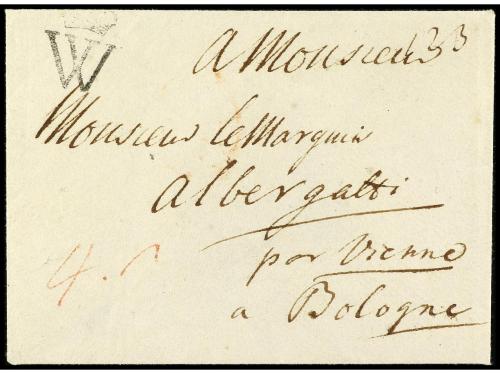 W
a Monsieur 133
Monsieur le Marquis
albergatti
par Vienne
a Bologne
4.